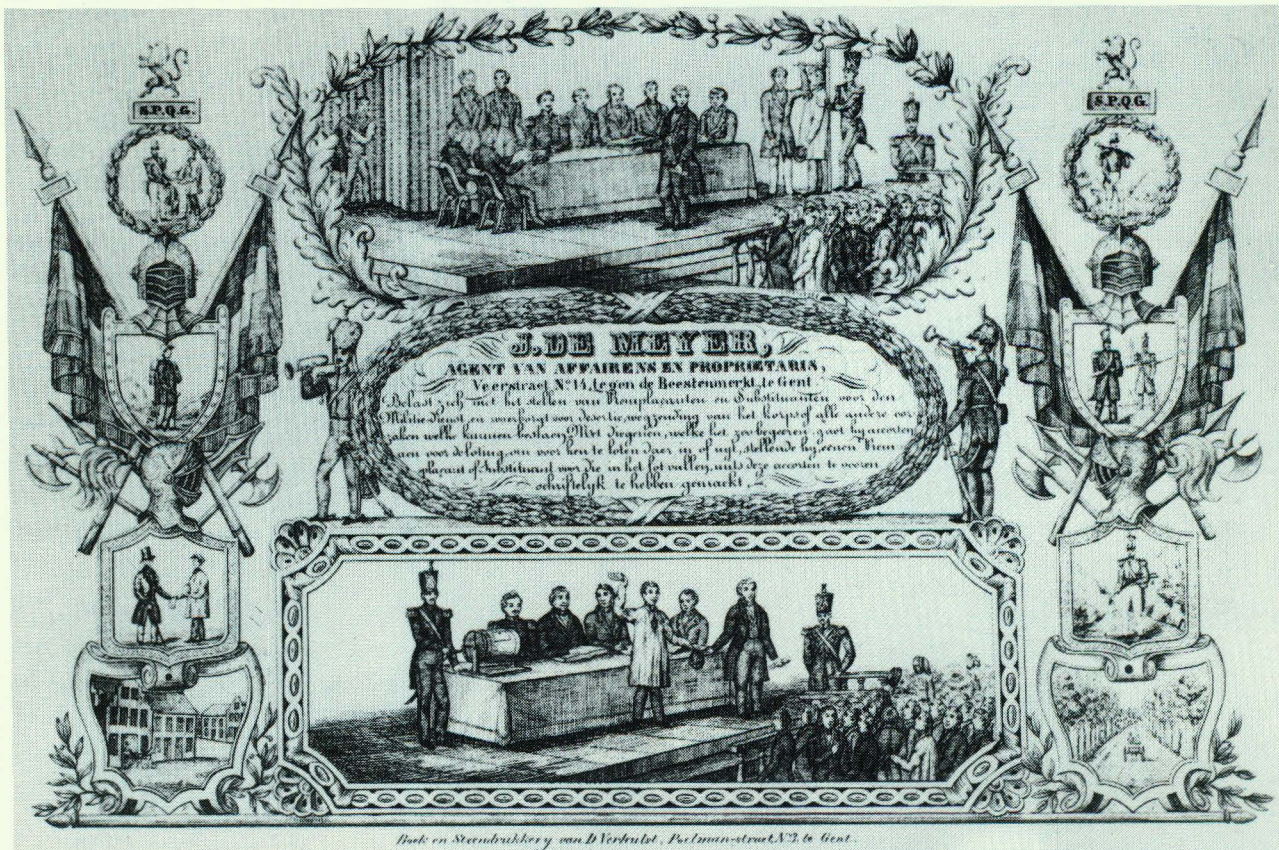 S.P.Q.G.
S.P.Q.G.
J. DE MEYER,
AGENT VAN AFFAIRENS EN PROPRIETARIS,
Veerstraet, Nº 14, tegen de Beestenmerkt, te Gent.
Belast zich met het stellen van Remplaçanten en Substituanten voor den
Militie Dienst en waerborgt voor desertie, wegzending van het korps of alle andere oor-
zaken welke kunnen bestaen. Met degenen, welke het zoo begeeren, zael hy accorden
nen voor de loting, om voor hen te loten daer in of uyt, stellende hy eenen Rem-
plaçant of Substituant voor die in het lot vallen, mits deze accorten te vooren
schriftelyk te hebben gemaekt.
Boek en Steendrukkery van D. Verhulst, Poelman-straet, Nº 3, te Gent.